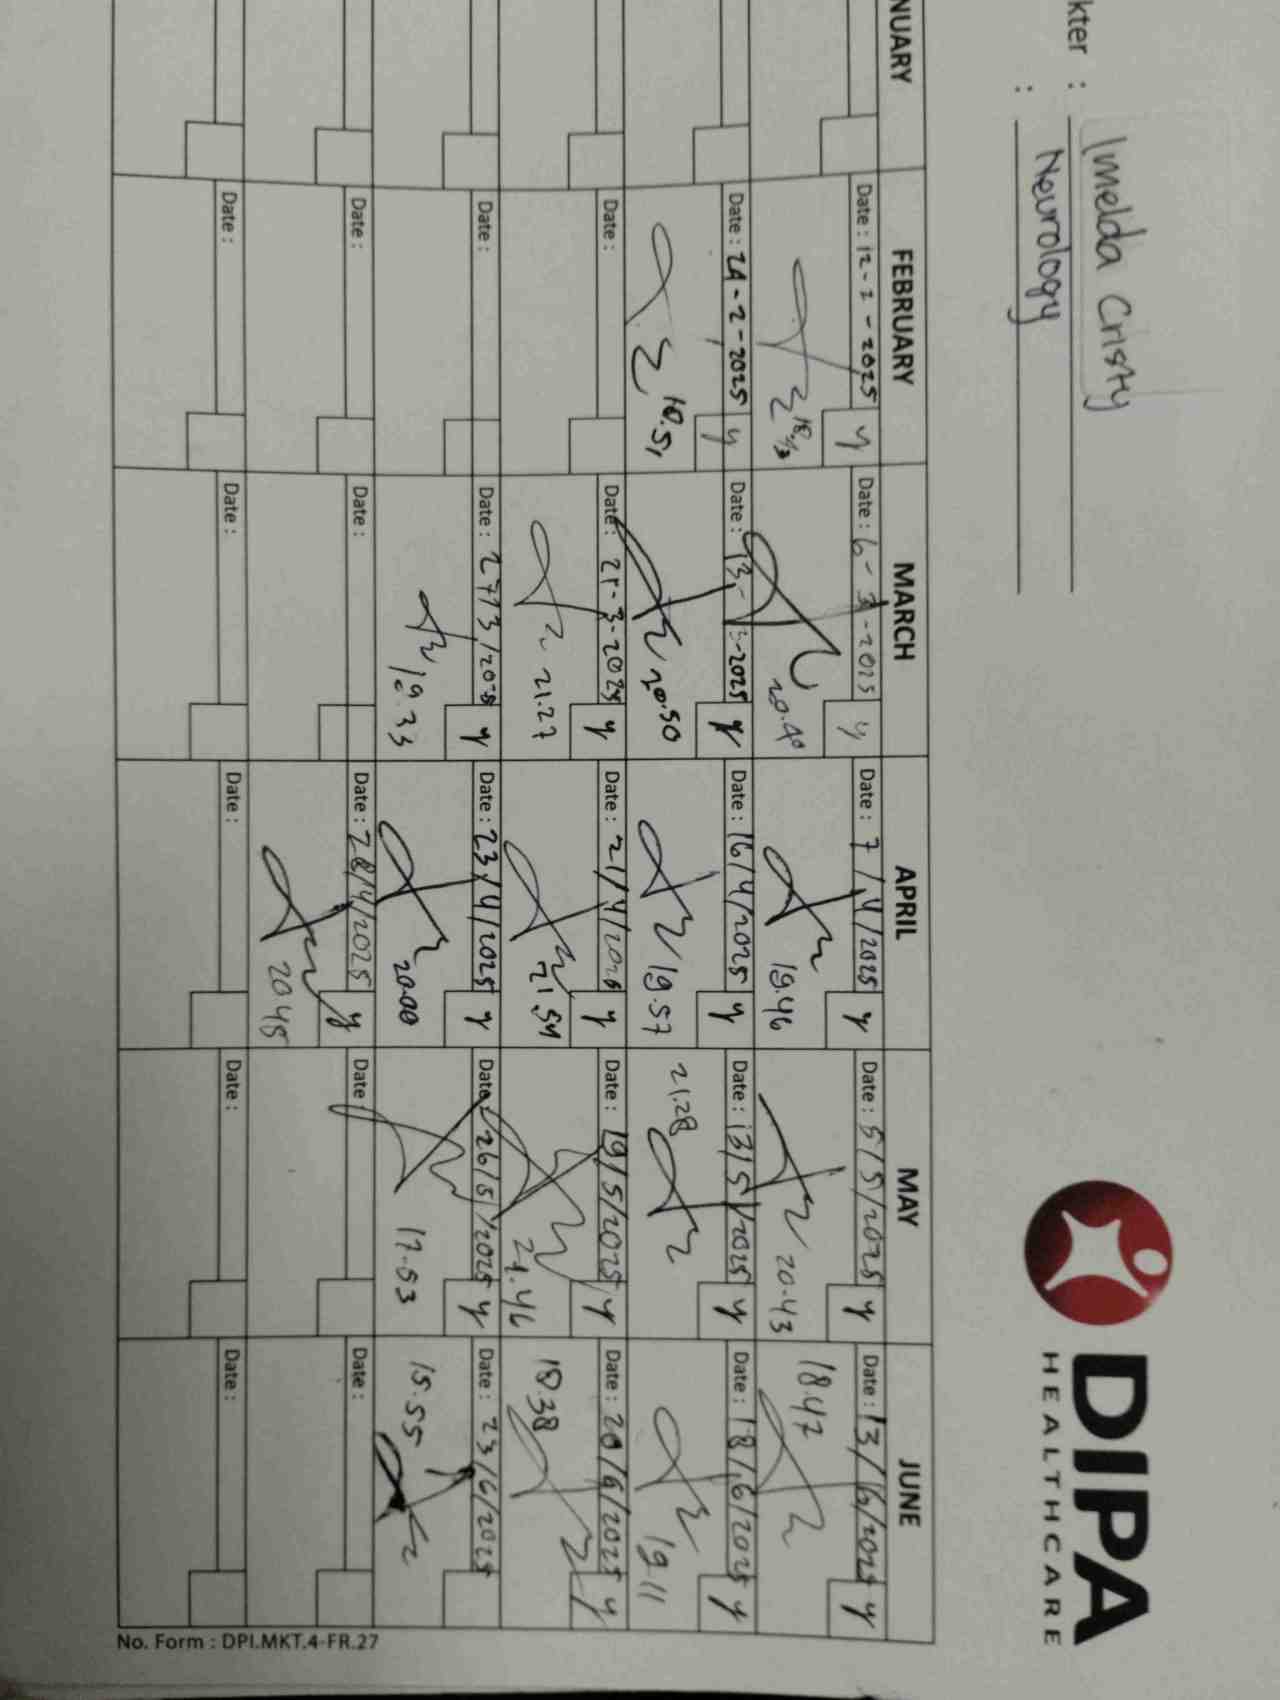 kter : Imelda Cristy
: Neurology
DIPA
HEALTHCARE
NUARY FEBRUARY MARCH APRIL MAY JUNE
Date : 12-2-2025 y Date : 6-3-2025 y Date : 7/4/2025 y Date : 5/5/2025 y Date : 13/6/2025 y
20.40 19.46 20.43 18.47
Date : 24-2-2025 y Date : 13-3-2025 y Date : 16/4/2025 y Date : 13/5/2025 y Date : 18/6/2025 y
18.51 20.50 19.57 21.28 19.11
Date : Date : 21-3-2025 y Date : 21/4/2025 y Date : 19/5/2025 y Date : 20/6/2025 y
21.27 21.54 21.46 18.38
Date : Date : 27/3/2025 y Date : 23/4/2025 y Date : 26/5/2025 y Date : 23/6/2025
19.33 20.00 17.53 15.55
Date : Date : Date : 28/4/2025 y Date Date :
20.48
Date : Date : Date : Date : Date :
No. Form : DPI.MKT.4-FR.27